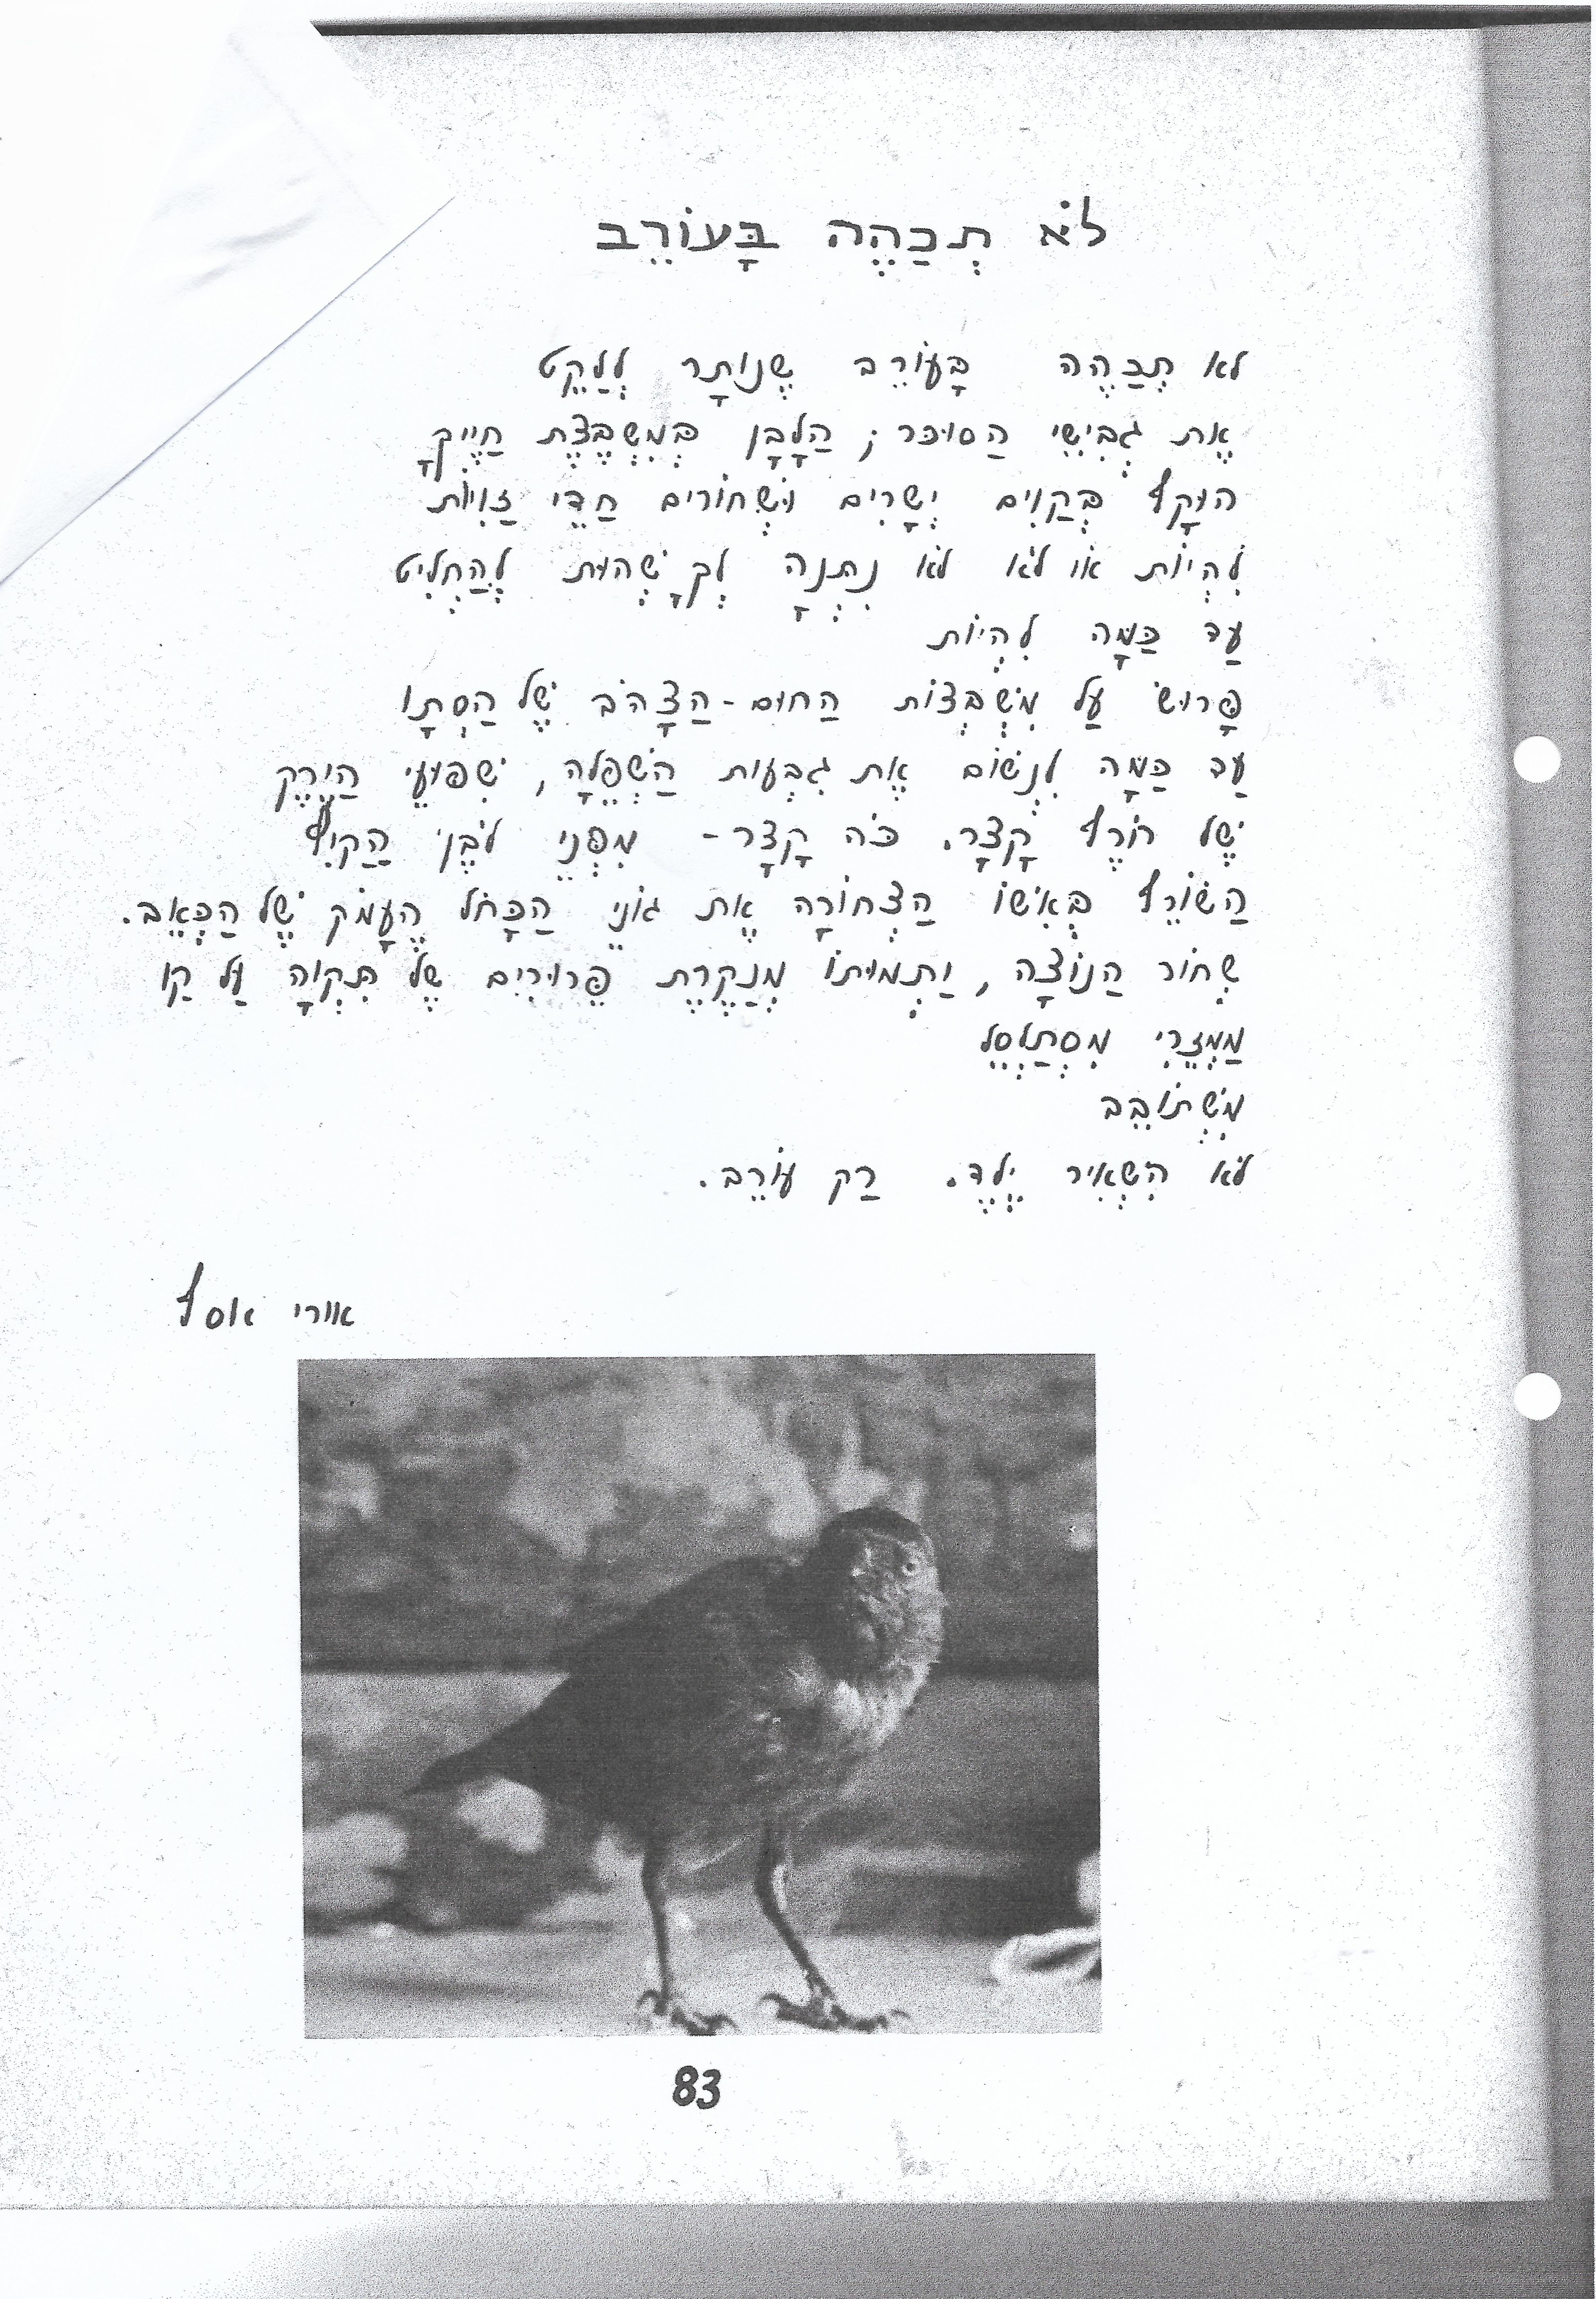 לֹא תִּכְהֶה בָּעוֹרֵב
לא תִּכְהֶה בָּעוֹרֵב שֶׁנּוֹתָר לְלַקֵּט
אֶת גְּבִישֵׁי הַסוּכּר; הַלָּבָן בְּמִשְׁבֶּצֶת חַיֶּיךָ
הוּקָף בְּקַוִים יְשָׁרִים וּשְׁחוֹרִים חַדֵּי זָוִיוֹת
לִהְיוֹת אוֹ לֹא לֹא נִתְּנָה לְךָ שְׁהוּת לְהַחְלִיט
עַד כַּמָּה לִהְיוֹת
פָּרוּשׂ עַל מִשְׁבְּצוֹת הַחוּם-הַצָּהֹב שֶׁל הַסְּתָו
עַד כַּמָּה לִנְשׁוֹם אֶת גִּבְעוֹת הַשְּׁפֵלָה, שִׁפּוּעֵי הַיֶּרֶק
שֶׁל חֹרֶף קָצָר. כֹּה קָצָר- מִפְּנֵי לֹבֶן הַקַּיִץ
הַשּׂוֹרֵף בְּאִשּׁוֹ הַצְּחוֹרָה אֶת גּוֹנֵי הַכָּחֹל הֶעָמֹק שֶׁל הַכְּאֵב.
שְׁחוֹר הַנּוֹצָה, יַתְמוּתוֹ מְנַקֶּרֶת פֵּרוּרִים שֶׁל תִּקְוָה עַל קַו
מַמְזֵרִי מִסְתַּלְסֵל
מִשְׁתּוֹבֵב
לֹא הִשְׁאִיר יֶלֶד. רַק עוֹרֵב.
אורי אסף
83